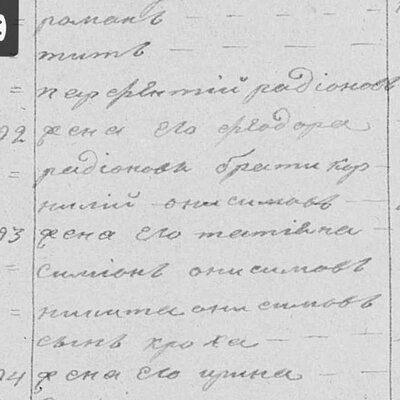 романъ
титъ
парфентий радіоновъ
92 жена его феодора
радіоновъ братъ кор
нилий онисимовъ
93 жена его татіана
симионъ онисимовъ
никита онисимовъ
сынъ кроха
94 жена его ирина